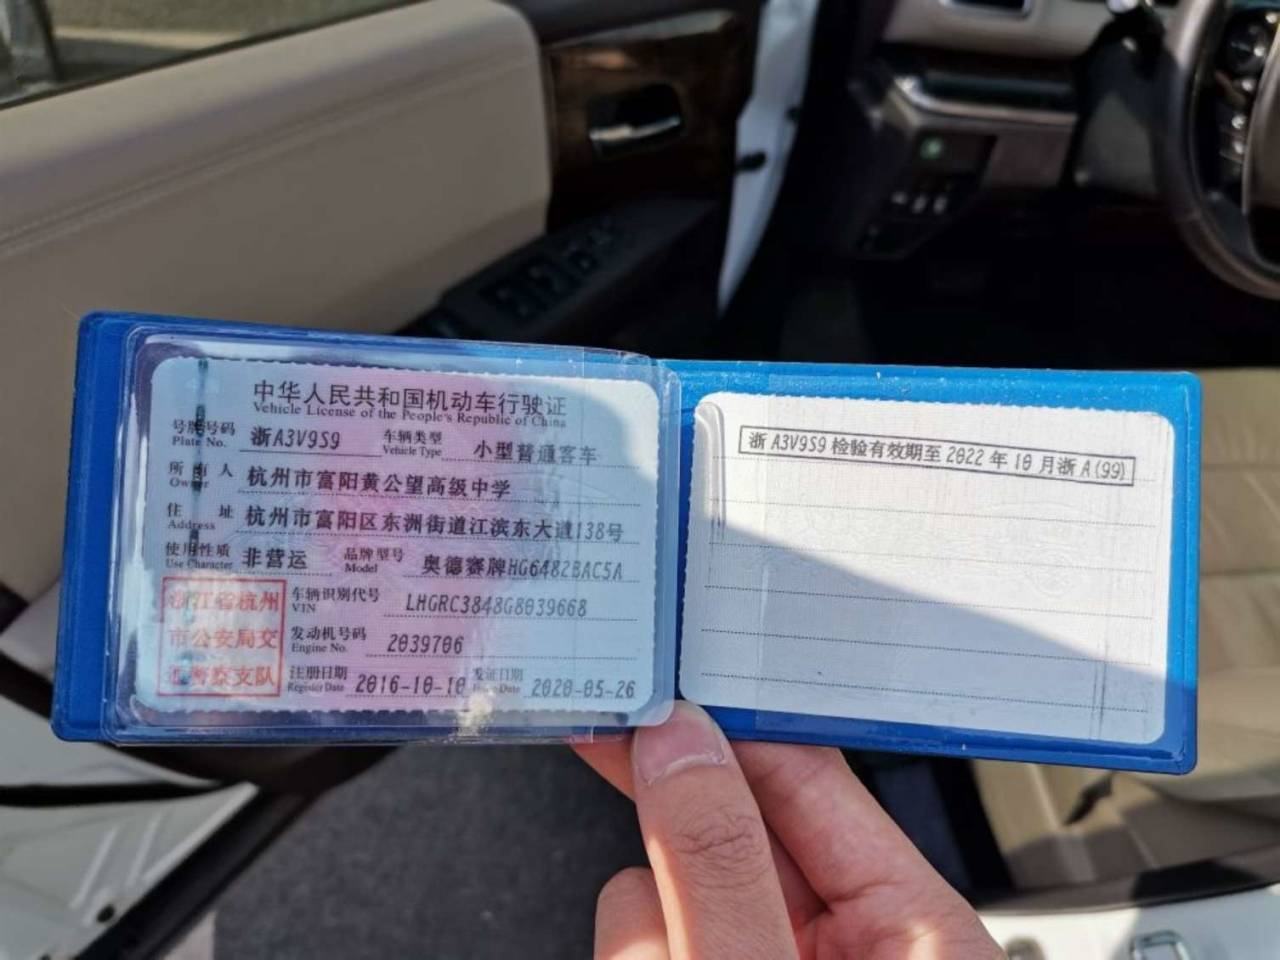 中华人民共和国机动车行驶证
Vehicle License of the People's Republic of China
号牌号码 浙A3V9S9 车辆类型 小型普通客车
Plate No. Vehicle Type
所有人 杭州市富阳黄公望高级中学
Owner
住址 杭州市富阳区东洲街道江滨东大道138号
Address
使用性质 非营运 品牌型号 奥德赛牌HG6482BAC5A
Use Character Model
浙江省杭州
市公安局交
通警察支队
车辆识别代号 LHGRC3848G8039668
VIN
发动机号码 2039706
Engine No.
注册日期 2016-10-10 发证日期 2020-05-26
Register Date Issue Date
浙A3V9S9检验有效期至2022年10月浙A(99)